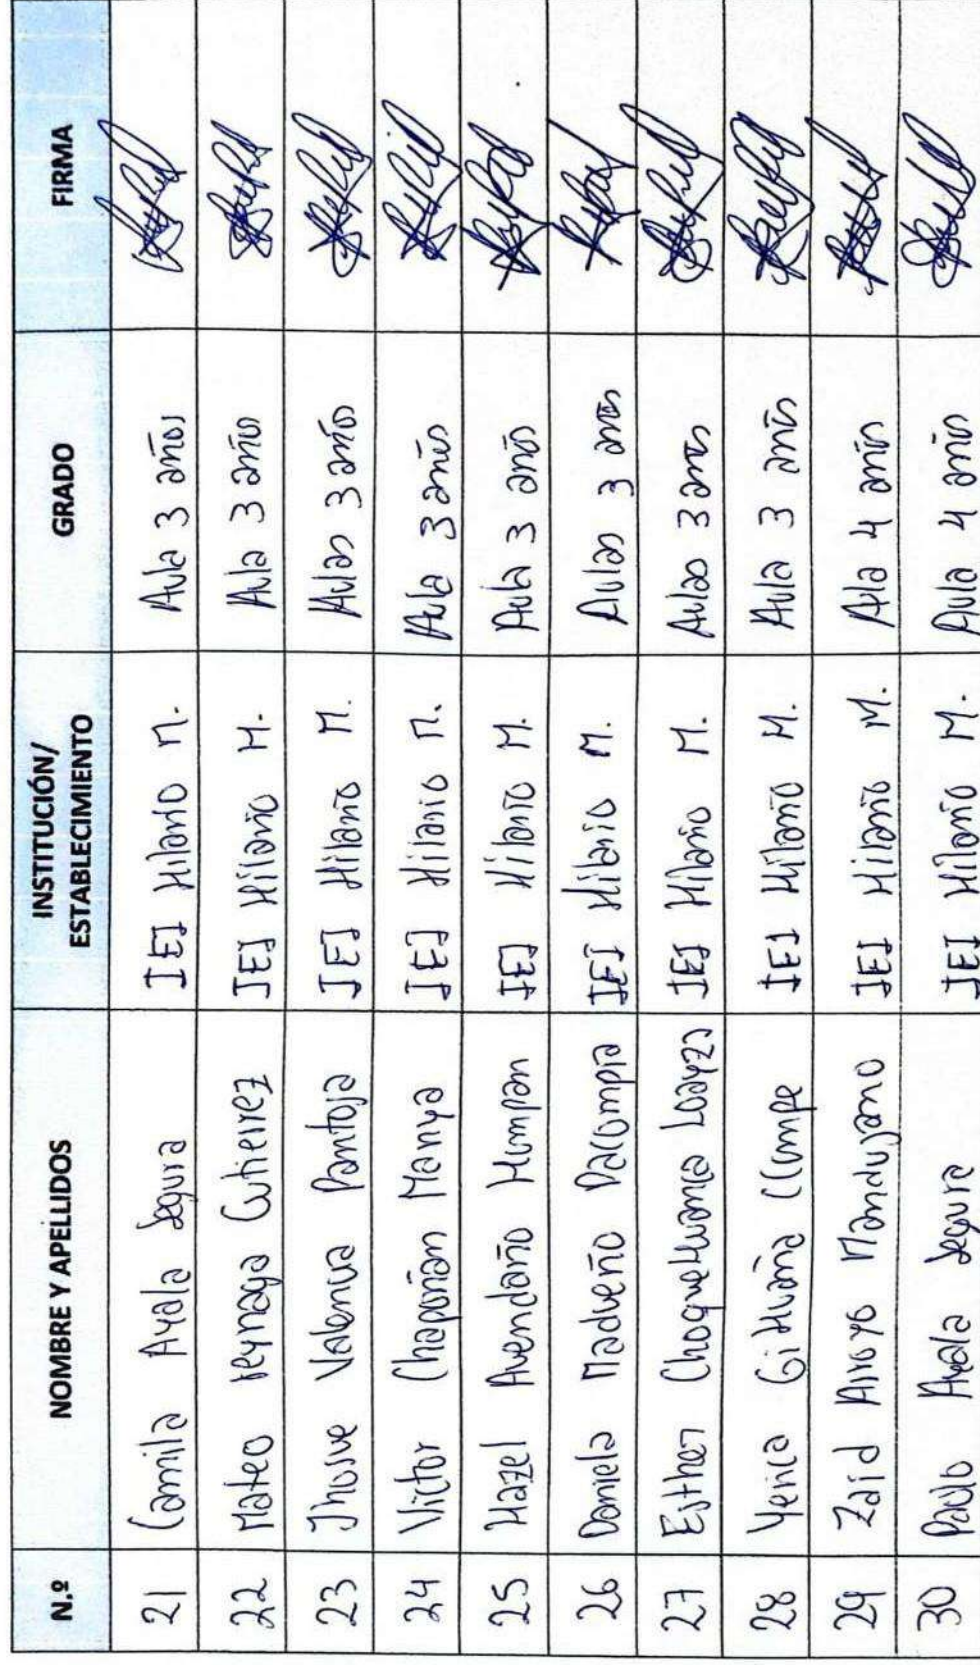 N.º NOMBRE Y APELLIDOS INSTITUCIÓN/ ESTABLECIMIENTO GRADO FIRMA
21 Camila Ayala Segura IEI Hilario M. Aula 3 años
22 Mateo reynaga Gutierrez IEI Hilario M. Aula 3 años
23 Jhosue Valencia Pantoja IEI Hilario M. Aulas 3 años
24 Victor Chapoñan Manya IEI Hilario M. Aula 3 años
25 Hazel Avendaño Humpan IEI Hilario M. Aula 3 años
26 Daniela Madueño Pacompia IEI Hilario M. Aulas 3 años
27 Esther Choquehuanca Loayza IEI Hilario M. Aulas 3 años
28 Yerica Ccumpe IEI Hilario M. Aula 3 años
29 Zaid Arroyo Mandujano IEI Hilario M. Aula 4 años
30 Pablo Ayala Segura IEI Hilario M. Aula 4 años